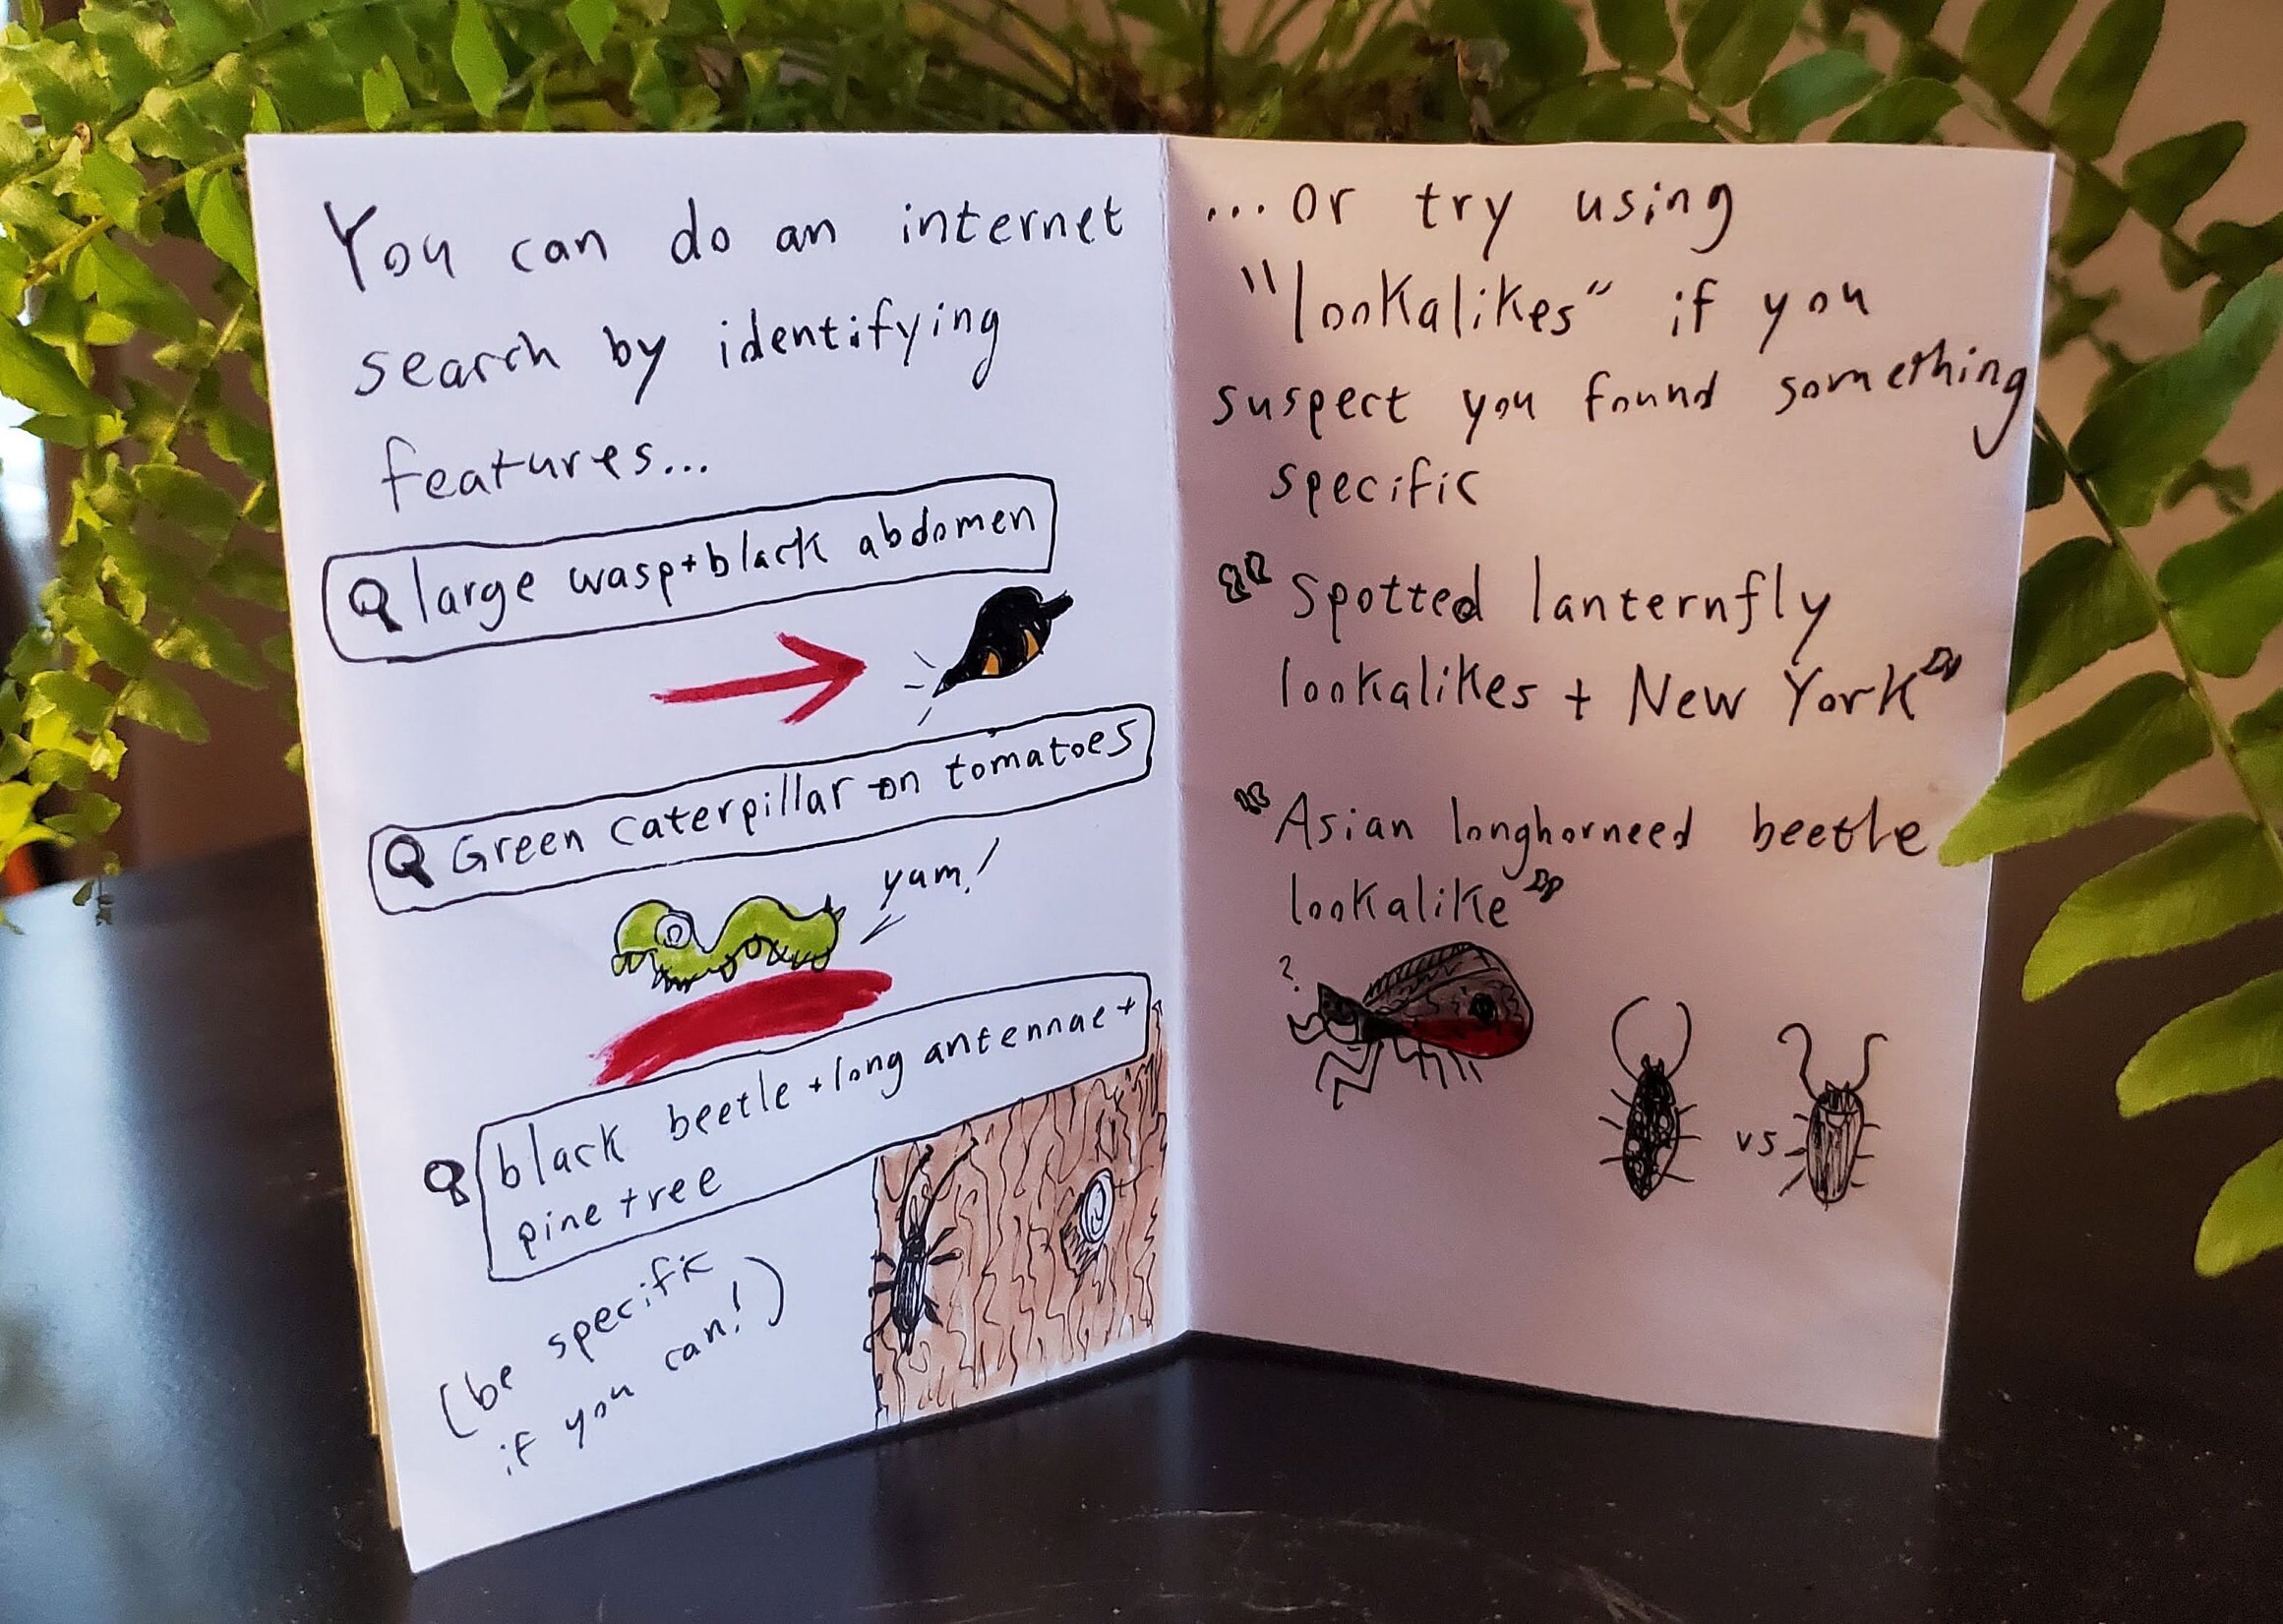 You can do an internet
search by identifying
features...
large wasp+black abdomen
Green caterpillar on tomatoes
yum!
black beetle+long antennae+
pine tree
(be specific
if you can!)
...or try using
"lookalikes" if you
suspect you found something
specific
"Spotted lanternfly
lookalikes + New York"
"Asian longhorneed beetle
lookalike"
?
vs